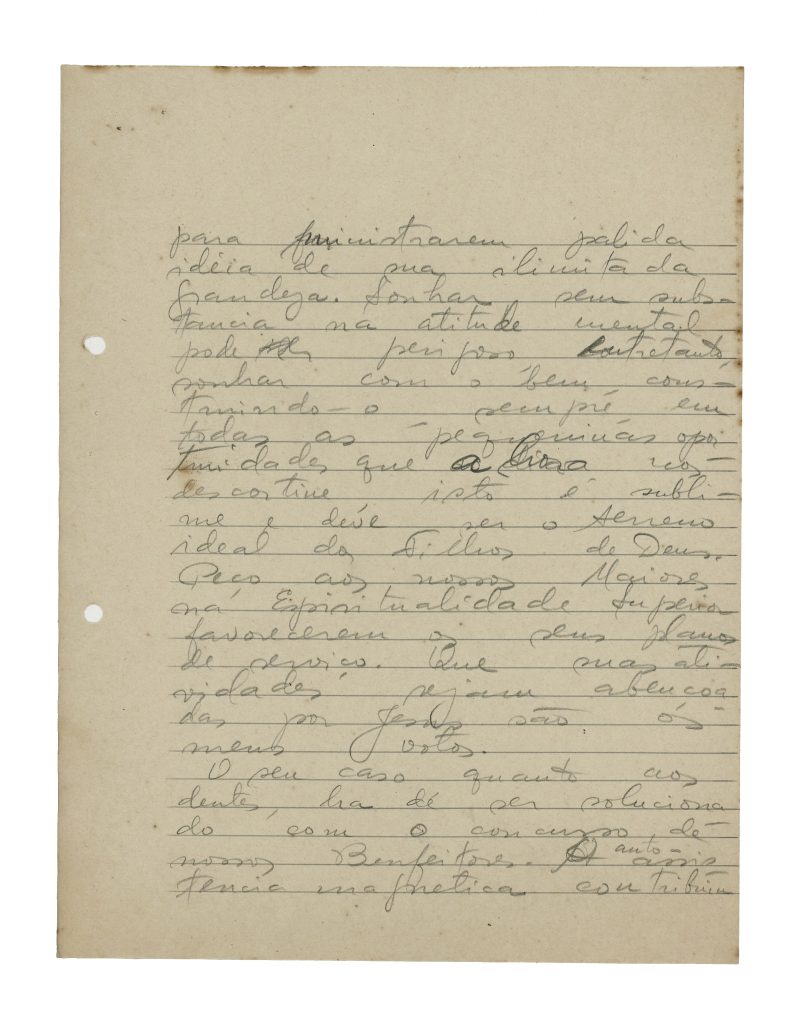 para ministrarem palida
idéia de sua ilimitada
grandeza. Sonhar, sem subs-
tancia na atitude mental
pode ser perigoso entretanto,
sonhar com o bem cons-
truindo-o sempre em
todas as pequeninas opor
tunidades que a luta nos
descortine isto é subli-
me e deve ser o terreno
ideal dos Filhos de Deus.
Peço aos nossos Maiores
na Espiritualidade Superior
favorecerem os seus planos
de serviço. Que suas ati-
vidades sejam abençoa
das por Jesus são os
meus votos.
O seu caso quanto aos
dentes, ha de ser soluciona
do com o concurso de
nossos Benfeitores. A auto-assis
tencia magnetica contribúe